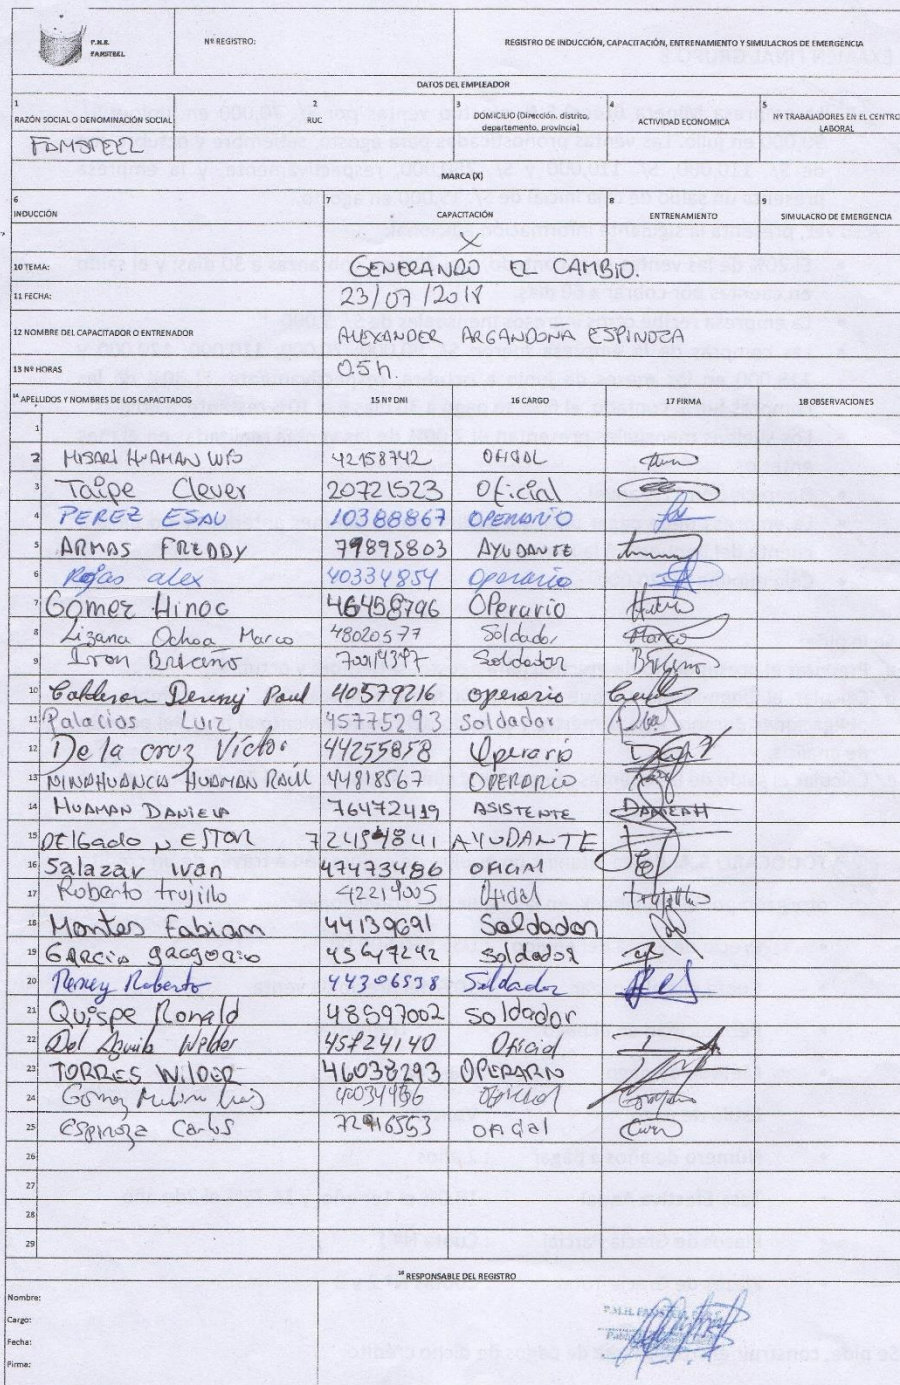 P.M.H.
FAMSTEEL
Nº REGISTRO:
REGISTRO DE INDUCCIÓN, CAPACITACIÓN, ENTRENAMIENTO Y SIMULACROS DE EMERGENCIA
DATOS DEL EMPLEADOR
1 RAZÓN SOCIAL O DENOMINACIÓN SOCIAL
2 RUC
3 DOMICILIO (Dirección, distrito, departamento, provincia)
4 ACTIVIDAD ECONÓMICA
5 Nº TRABAJADORES EN EL CENTRO LABORAL
FAMSTEEL
MARCA (X)
6 INDUCCIÓN
7 CAPACITACIÓN
8 ENTRENAMIENTO
9 SIMULACRO DE EMERGENCIA
X
10 TEMA: GENERANDO EL CAMBIO.
11 FECHA: 23/07/2018
12 NOMBRE DEL CAPACITADOR O ENTRENADOR ALEXANDER ARGANDOÑA ESPINOZA
13 Nº HORAS 0.5h.
14 APELLIDOS Y NOMBRES DE LOS CAPACITADOS 15 Nº DNI 16 CARGO 17 FIRMA 18 OBSERVACIONES
1
2 MISARI HUAMAN 42158742 OFICIAL
3 Taipe Clever 20721523 Oficial
4 PEREZ ESAU 10388867 OPERARIO
5 ARMAS FREDDY 79895803 AYUDANTE
6 Rojas alex 40334854 Operario
7 Gomez Hinoc 46458796 Operario
8 Lizana Ochoa Marco 48020577 Soldador Marco
9 Soldador
10 Calderon Denny Paul 40579216 operario
11 Palacios Luiz 45775293 Soldador
12 De la cruz Víctor 44255858 Operario
13 NINAHUANCA HUAMAN RAÚL 44818567 OPERARIO
14 HUAMAN DANIELA 76472419 ASISTENTE
15 DELGADO NESTOR AYUDANTE
16 Salazar ivan 47473486 OFICIAL
17 Roberto trujillo 42219005 Oficial
18 Montes Fabian 44139691 Soldador
19 GARCIA 45647242 soldador
20 Roberto 44306538 Soldador
21 Quispe Ronald 48597002 soldador
22 Del Aguila Welder Oficial
23 TORRES WILDER 46038293 OPERARIO
24 Gomez
25 Espinoza Carlos oficial
26
27
28
29
19 RESPONSABLE DEL REGISTRO
Nombre:
Cargo:
Fecha:
Firma: